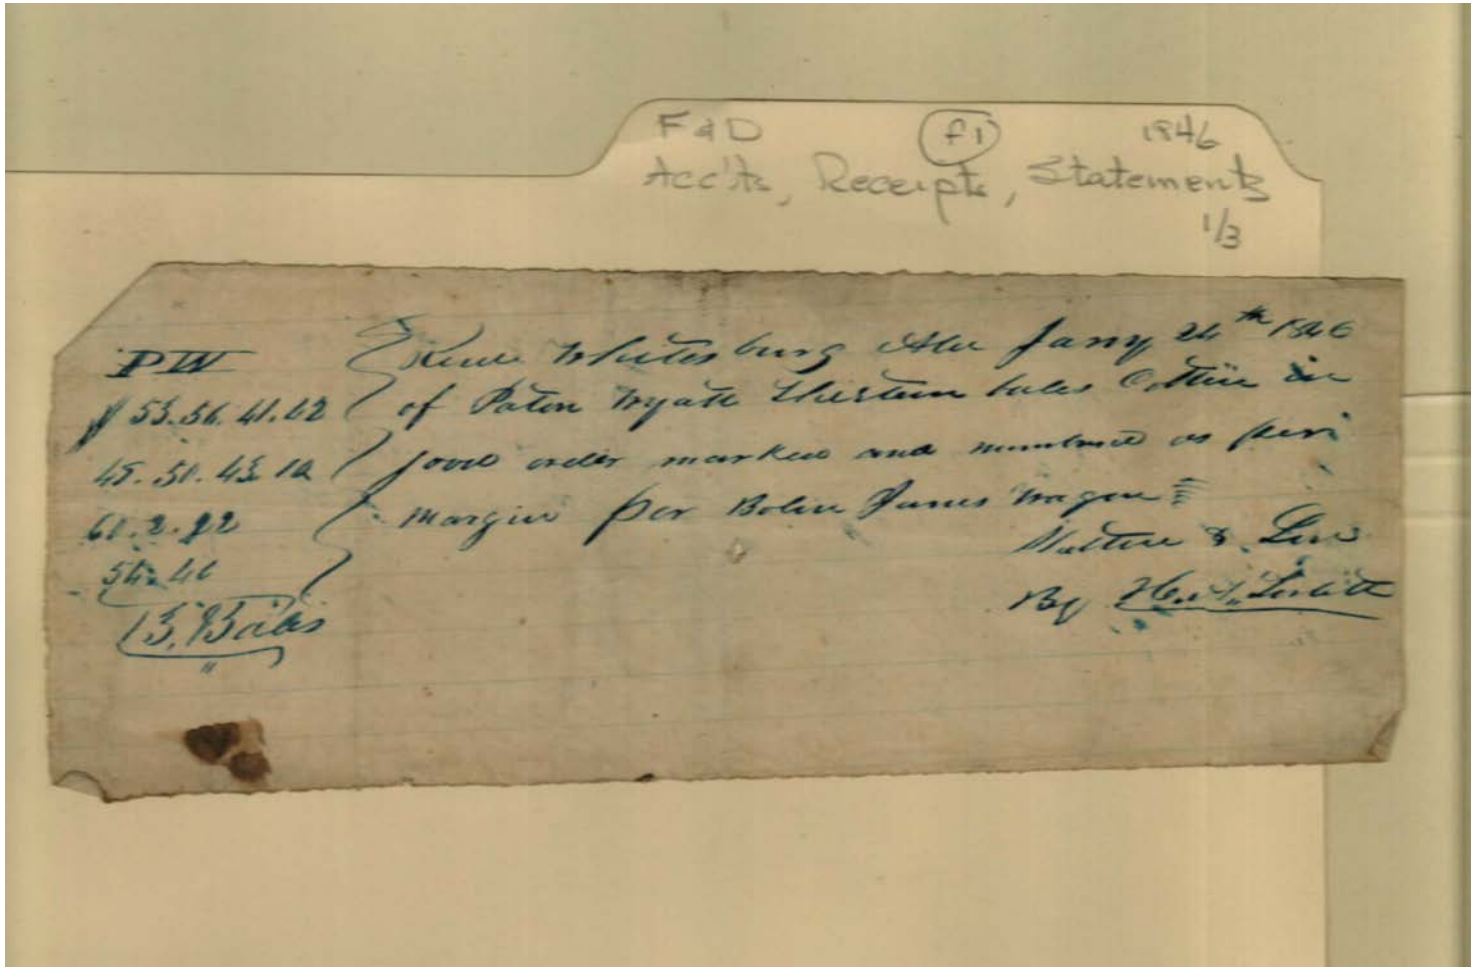 F & D (f1) 1846
Acc'ts, Receipts, Statements
1/3
PW
55. 56. 41. 62
45. 50. 43. 
60. 2. 22
54. 46
13, Bales
Whitesburg Ala Jany 24th 1846
of Paton Wyatt Thirteen bales Cotton in
good order marked and numbered as per
margin per Wagon
By